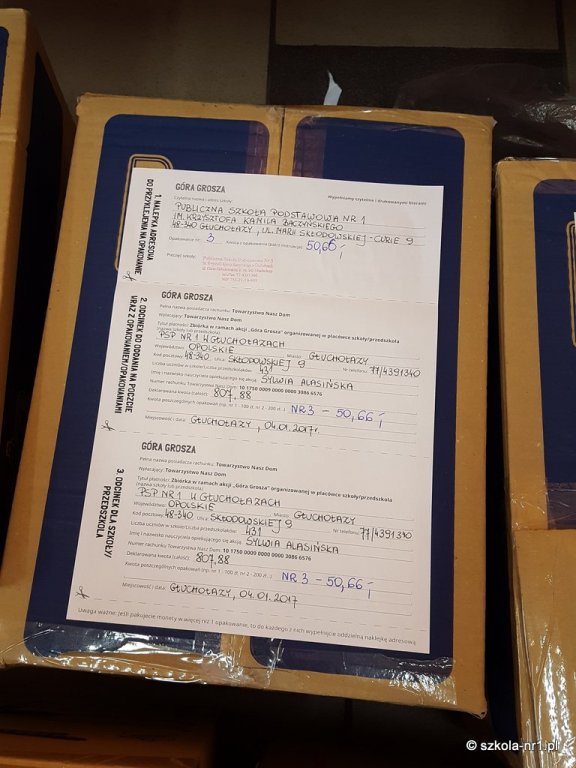 1. NALEPKA ADRESOWA
DO PRZYKLEJENIA NA OPAKOWANIE
GÓRA GROSZA
Wypełniamy czytelnie i drukowanymi literami
Czytelna nazwa i adres szkoły:
PUBLICZNA SZKOŁA PODSTAWOWA NR 1
IM. KRZYSZTOFA KAMILA BACZYŃSKIEGO
48-340 GŁUCHOŁAZY, UL. MARII SKŁODOWSKIEJ-CURIE 9
Opakowanie nr: 3 Kwota z opakowania 50,66,-
Pieczęć szkoły:
2. ODCINEK DO ODDANIA NA POCZCIE
WRAZ Z OPAKOWANIEM/OPAKOWANIAMI
GÓRA GROSZA
Pełna nazwa posiadacza rachunku: Towarzystwo Nasz Dom
Wpłacający: Towarzystwo Nasz Dom
Tytuł płatności: Zbiórka w ramach akcji „Góra Grosza" organizowanej w placówce szkoły/przedszkola
(nazwa szkoły lub przedszkola):
PSP NR 1 W GŁUCHOŁAZACH
Województwo: OPOLSKIE Miasto: GŁUCHOŁAZY
Kod pocztowy: 48-340 Ulica: SKŁODOWSKIEJ 9 Nr telefonu: 77/4391340
Liczba uczniów w szkole/przedszkolaków: 431
Imię i nazwisko nauczyciela opiekującego się akcją: SYLWIA ALASIŃSKA
Numer rachunku: Towarzystwo Nasz Dom: 10 1750 0009 0000 0000 3086 6576
Deklarowana kwota (całość): 807,88
Kwota poszczególnych opakowań (np. nr 1 - 100 zł; nr 2 - 200 zł...) NR 3 - 50,66,-
Miejscowość i data: GŁUCHOŁAZY, 04.01.2017r.
3. ODCINEK DLA SZKOŁY/
PRZEDSZKOLA
GÓRA GROSZA
Pełna nazwa posiadacza rachunku: Towarzystwo Nasz Dom
Wpłacający: Towarzystwo Nasz Dom
Tytuł płatności: Zbiórka w ramach akcji „Góra Grosza" organizowanej w placówce szkoły/przedszkola
(nazwa szkoły lub przedszkola):
PSP NR 1 W GŁUCHOŁAZACH
Województwo: OPOLSKIE Miasto: GŁUCHOŁAZY
Kod pocztowy: 48-340 Ulica: SKŁODOWSKIEJ 9 Nr telefonu: 77/4391340
Liczba uczniów w szkole/przedszkolaków: 431
Imię i nazwisko nauczyciela opiekującego się akcją: SYLWIA ALASIŃSKA
Numer rachunku: Towarzystwo Nasz Dom: 10 1750 0009 0000 0000 3086 6576
Deklarowana kwota (całość): 807,88
Kwota poszczególnych opakowań (np. nr 1 - 100 zł; nr 2 - 200 zł...) NR 3 - 50,66,-
Miejscowość i data: GŁUCHOŁAZY, 04.01.2017
Uwaga ważne: Jeśli pakujecie monety w więcej niż 1 opakowanie, to do każdego z nich wypełnijcie oddzielną naklejkę adresową
© szkola-nr1.pl